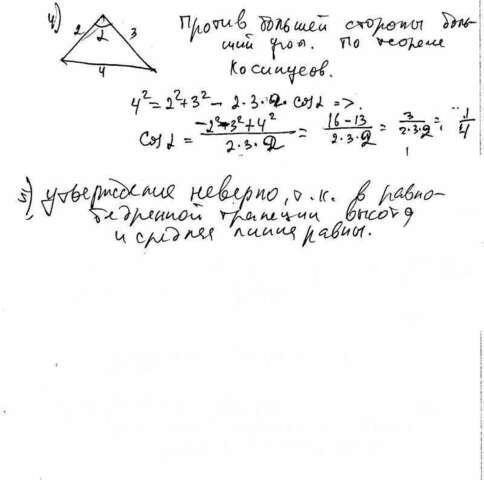 4)
2 α 3
4
Против большей стороны боль-
ший угол. По теореме
Косинусов.
4² = 2² + 3² - 2·3·2·cos α =>
cos α = -2² - 3² + 4² / 2·3·2 = 16 - 13 / 2·3·2 = 3 / 2·3·2 = 1/4
5) утверждение неверно, т.к. в равно-
бедренной трапеции высота
и средняя линия равны.